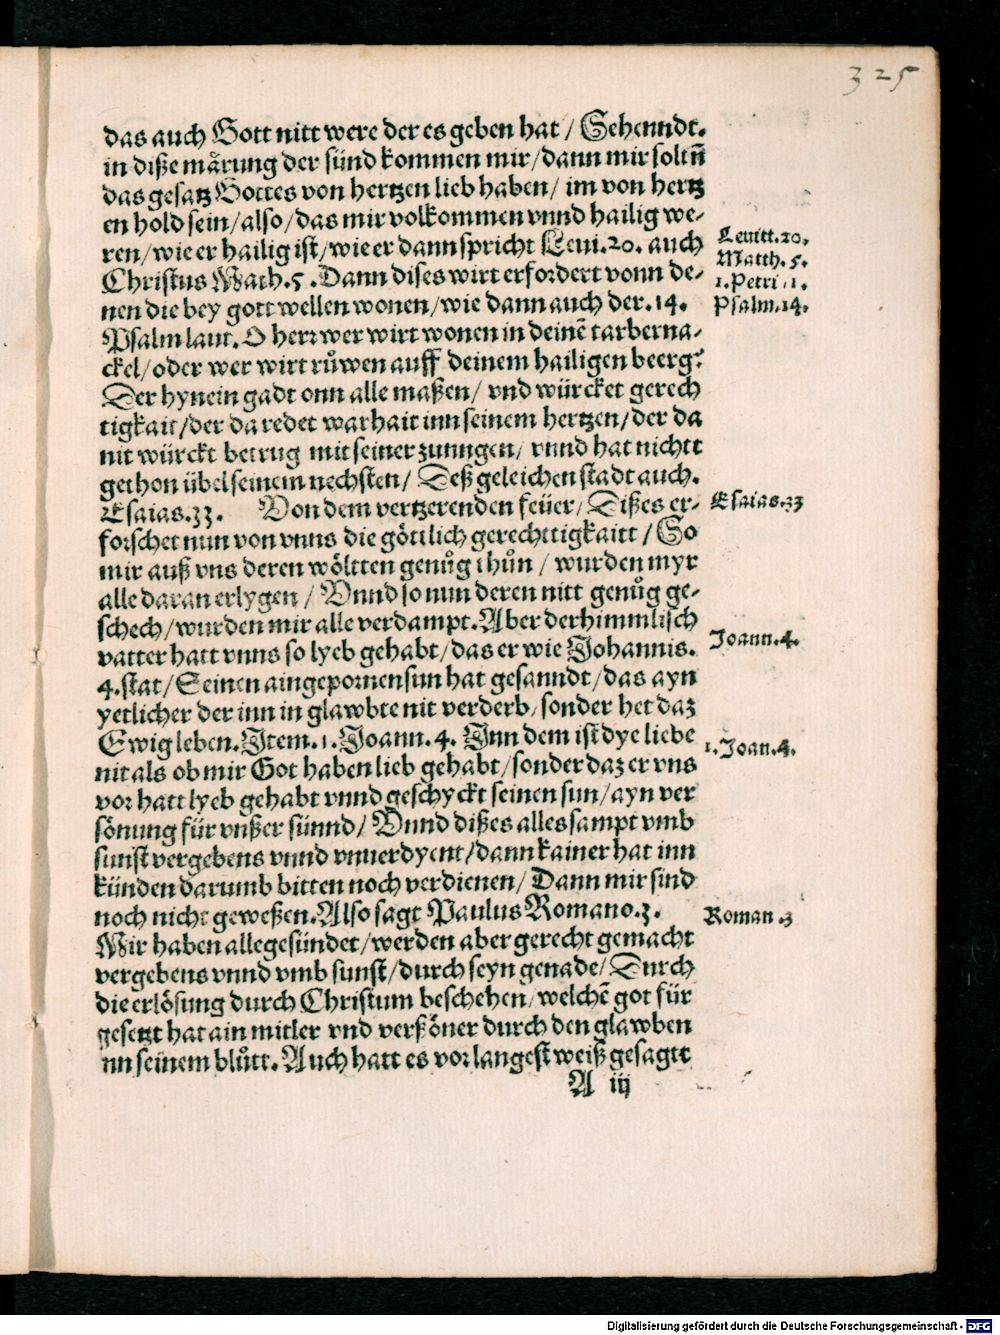 325
das auch Gott nitt were der es geben hat / Sehenndt.
in diße mårung der sünd kommen mir / dann mir soltñ
das gesatz Gottes von hertzen lieb haben / im von hertz
en hold sein / also / das mir volkommen vnnd hailig we-
ren / wie er hailig ist / wie er dann spricht Leui.20. auch
Leuitt.20.
Christus Math.5. Dann dises wirt erfordert vonn de-
Matth.5.
nen die bey gott wellen wonen / wie dann auch der.14.
1.Petri.1.
Psalm laut. O herr wer wirt wonen in deinē tarberna-
Psalm.14.
ckel / oder wer wirt růwen auff deinem hailigen beerg?
Der hynein gadt onn alle maßen / vnd würcket gerech
tigkait / der da redet warhait inn seinem hertzen / der da
nit würckt betrug mit seiner zunngen / vnnd hat nichtt
gethon übel seinem nechsten / Deß geleichen stadt auch.
Esaias.33. Von dem vertzerenden feüer / Dißes er-
Esaias.33
forschet nun von vnns die göttlich gerechttigkaitt / So
mir auß vns deren wöltten genůg thůn / wurden myr
alle daran erlygen / Vnnd so nun deren nitt genůg ge-
schech / wurden mir alle verdampt. Aber der himmlisch
vatter hatt vnns so lyeb gehabt / das er wie Johannis.
Joann.4.
4. stat / Seinen aingepornen sun hat gesanndt / das ayn
yetlicher der inn in glawbte nit verderb / sonder het daz
Ewig leben. Item.1. Joann.4. Inn dem ist dye liebe
1.Joan.4.
nit als ob mir Got haben lieb gehabt / sonder daz er vns
vor hatt lyeb gehabt vnnd geschyckt seinen sun / ayn ver
sönung für vnßer sünnd / Vnnd dißes alles sampt vmb
sunst vergebens vnnd vnuerdyent / dann kainer hat inn
künden darumb bitten noch verdienen / Dann mir sind
noch nicht geweßen. Also sagt Paulus Romano.3.
Roman.3
Wir haben alle gesündet / werden aber gerecht gemacht
vergebens vnnd vmb sunst / durch seyn genade / Durch
die erlösung durch Christum beschehen / welchē got für
gesetzt hat ain mitler vnd verßöner durch den glawben
nn seinem blůtt. Auch hatt es vor langest weiß gesagtt
A iij
Digitalisierung gefördert durch die Deutsche Forschungsgemeinschaft - DFG